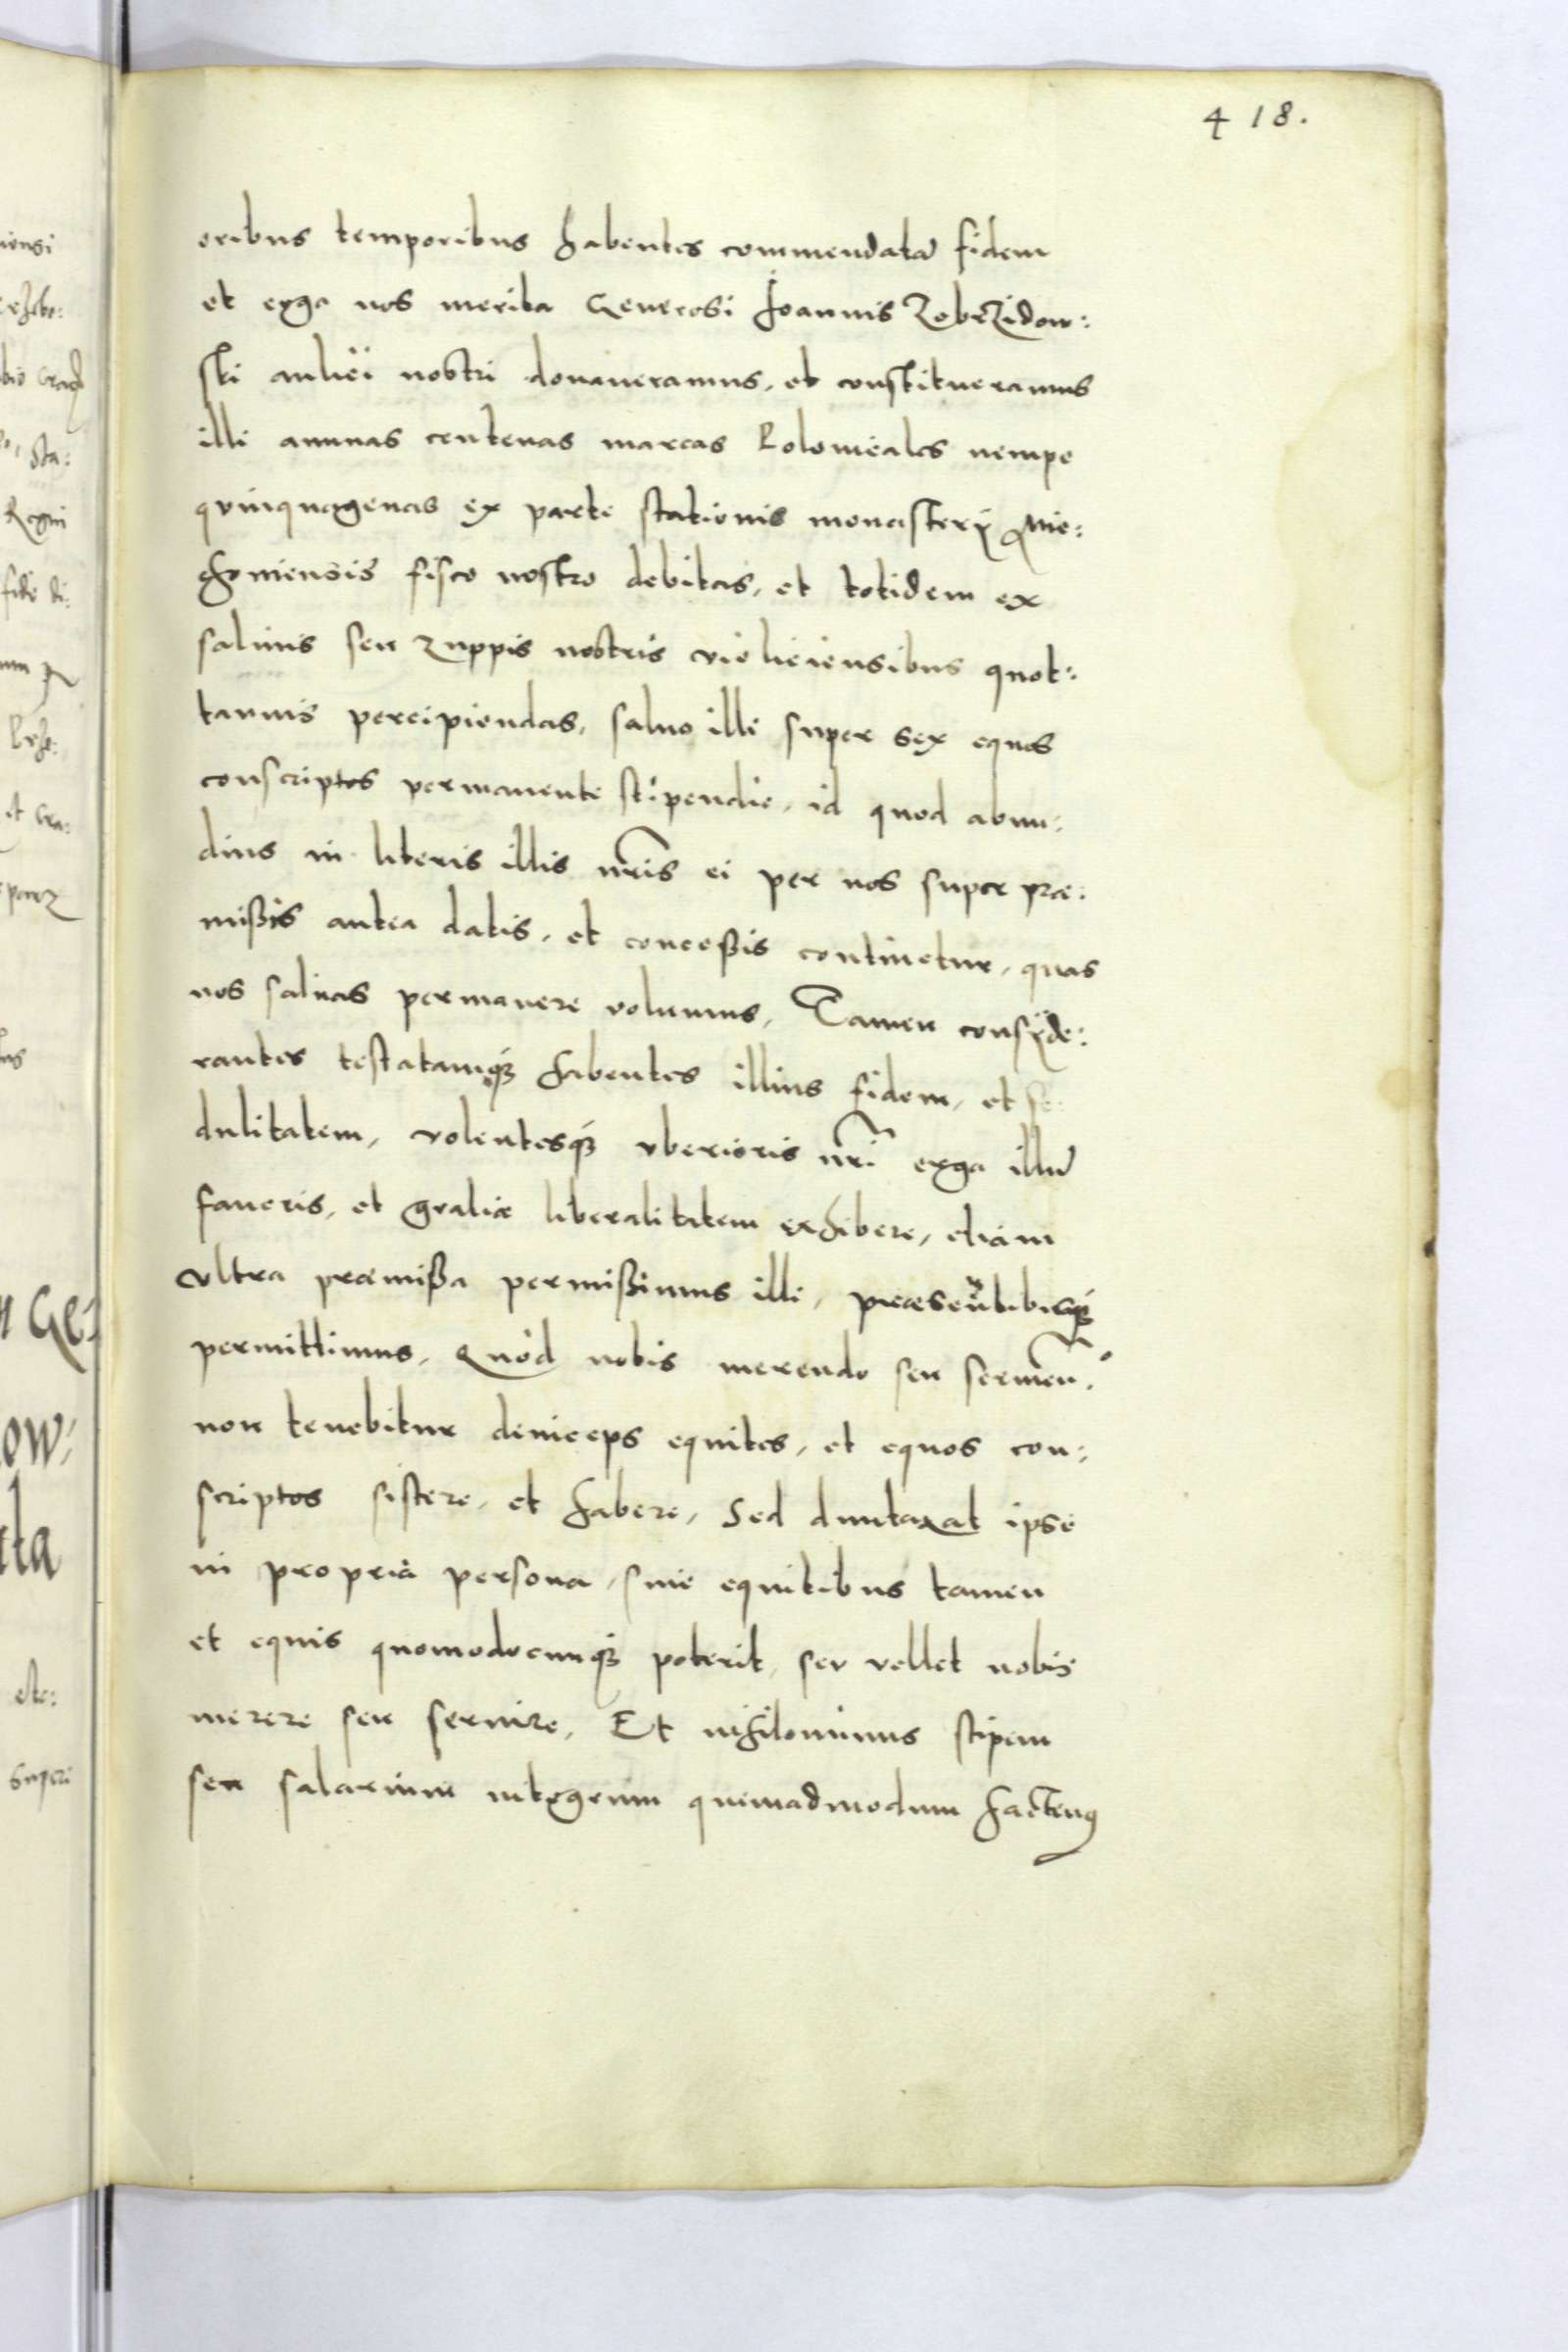 418.
oribus temporibus habentes commendatā fidem
et erga nos merita Generosi Joannis Zebrzidow:
ski aulici nostri donaveramus, et constitueramus
illi annuas centenas marcas Polonicales nempe
quinquagenas ex parte stationis monasterij Mie:
choviensis fisco nostro debitas, et totidem ex
salinis seu zuppis nostris vieliciensibus quot:
tannis percipiendas, salvo illi super sex equos
conscriptos permanente stipendio, id quod abun:
dius in literis illis nr̄is ei per nos super præ:
mißis antea datis, et conceßis continetur, quas
nos salvas permanere volumus, Tamen consyde:
rantes testatamq; habentes illius fidem, et se:
dulitatem, volentesq; vberioris nr̄i erga illū
favoris, et gratiæ liberalitatem exhibere, etiam
vltra præmißa permißimus illi, præsentibusq;
permittimus, Quod nobis merendo seu servien:
non tenebitur deinceps equites, et equos con:
scriptos sistere, et habere, Sed duntaxat ipse
in propria persona, sine equitibus tamen
et equis quomodocunq; poterit, seu vellet nobis
merere seu servire, Et nihilominus stipem
seu salarium integrum quemadmodum hactenus
iensi
Sta:
Regni
fide di:
it Cra:
n Ge:
ow:
ta
etc: